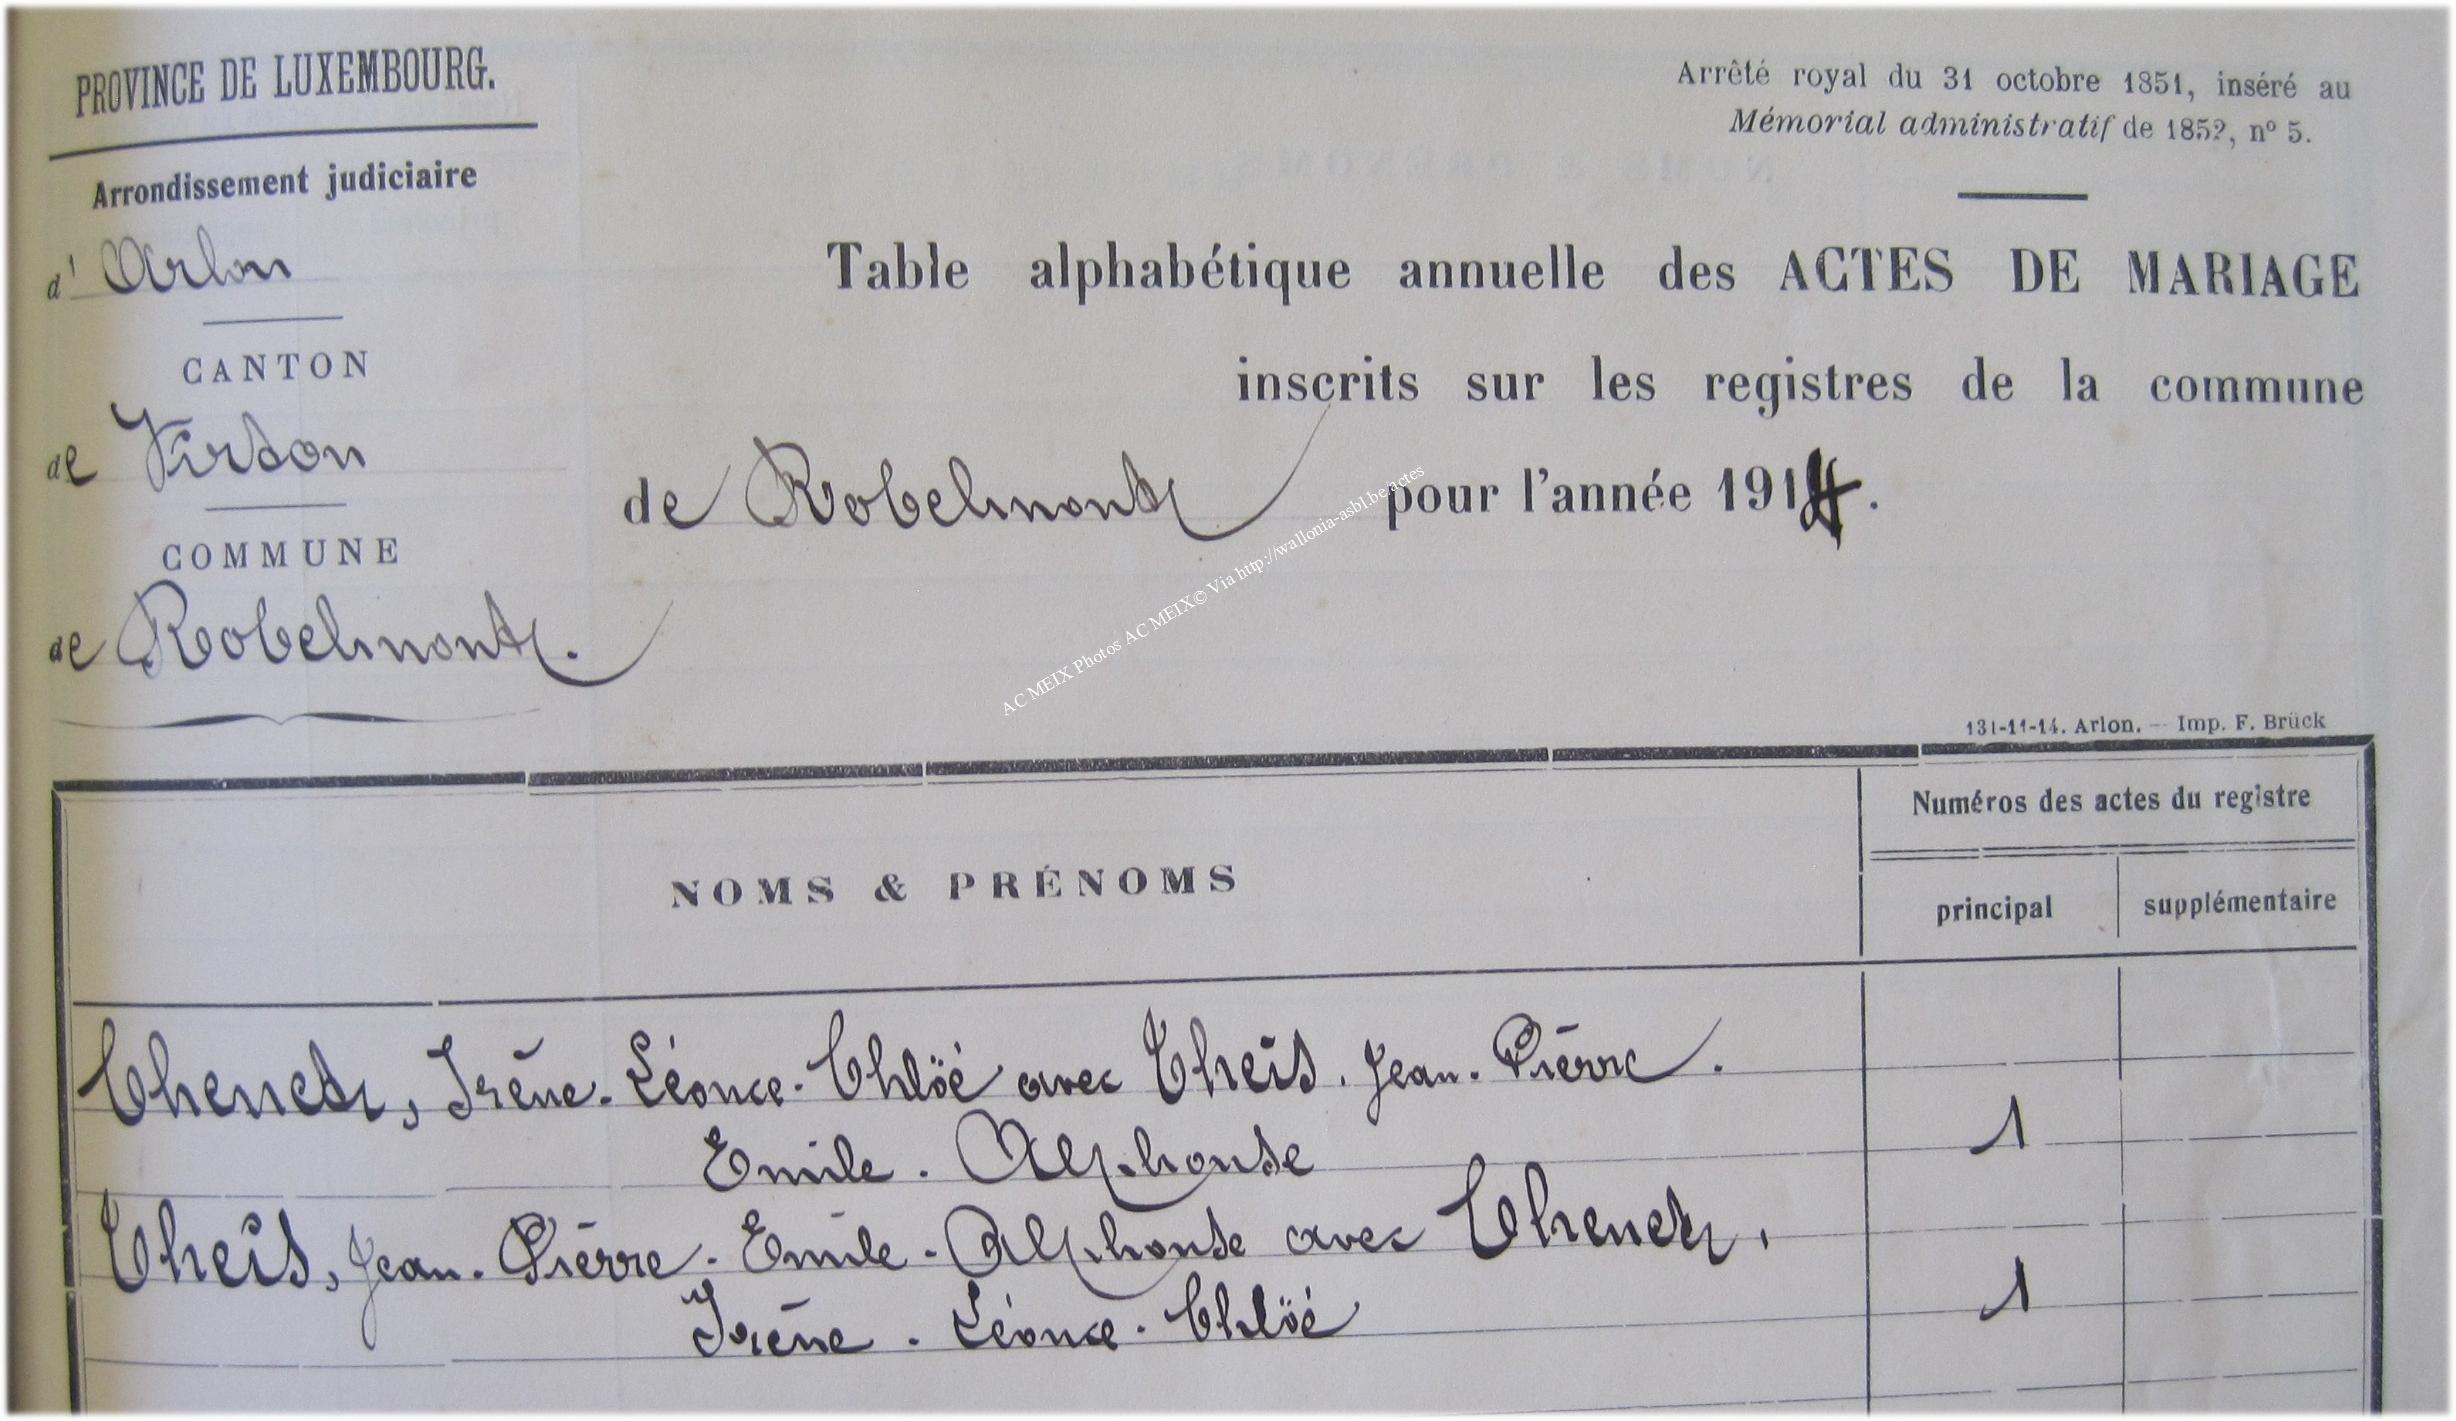 PROVINCE DE LUXEMBOURG.
Arrondissement judiciaire
d' Arlon
CANTON
de Virton
COMMUNE
de Robelmont.
Arrêté royal du 31 octobre 1851, inséré au
Mémorial administratif de 1852, nº 5.
Table alphabétique annuelle des ACTES DE MARIAGE
inscrits sur les registres de la commune
de Robelmont pour l'année 1914.
AC MEIX Photos AC MEIX© Via http://wallonia-asbl.be/actes
131-11-14. Arlon. — Imp. F. Brück
NOMS & PRÉNOMS
Numéros des actes du registre
principal
supplémentaire
Thenet, Irène-Léonce-Chloé avec Theis, Jean-Pierre.
Emile-Alphonse
1
Theis, Jean-Pierre-Emile-Alphonse avec Thenet,
Irène-Léonce-Chloé
1